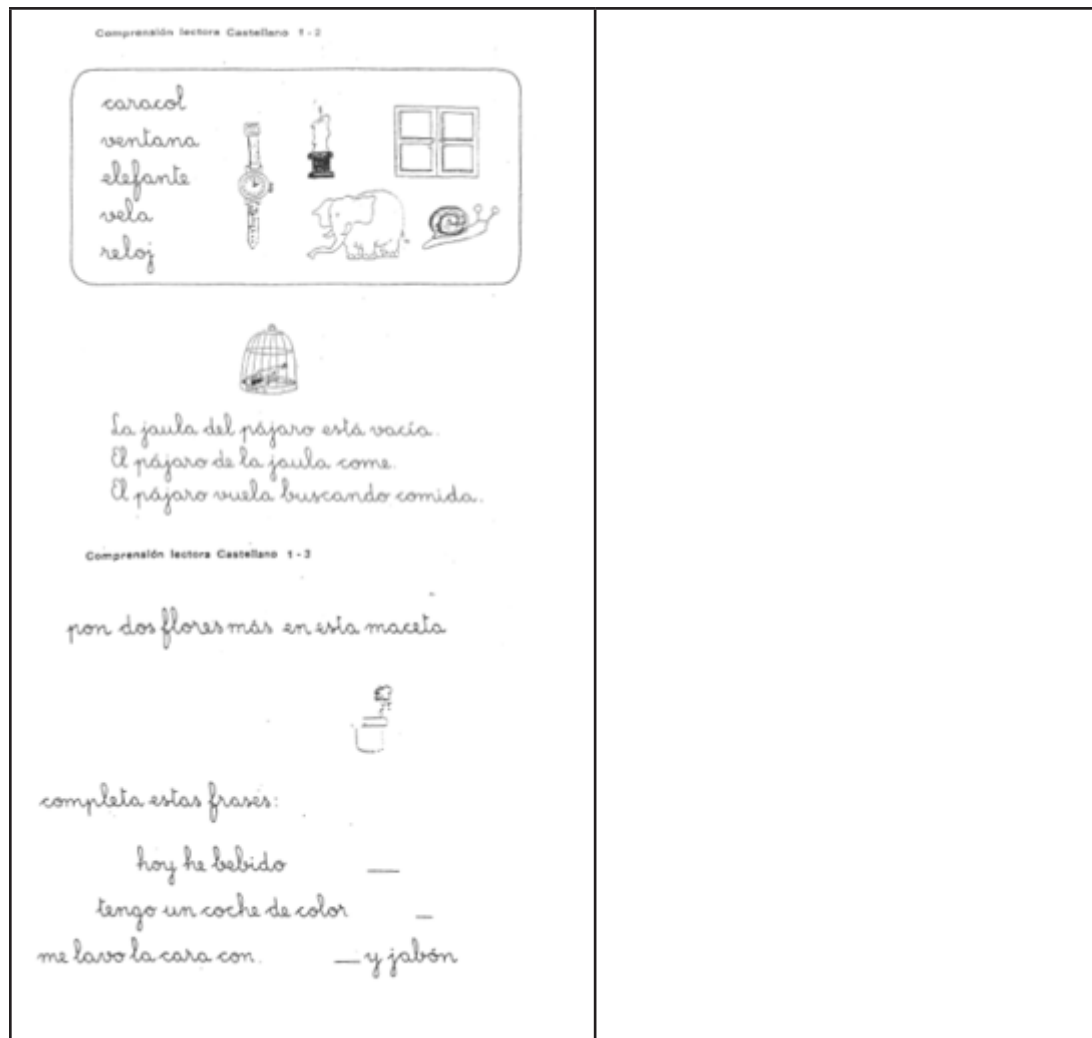 Comprensión lectora Castellano 1 - 2
caracol
ventana
elefante
vela
reloj
La jaula del pájaro está vacía.
El pájaro de la jaula come.
El pájaro vuela buscando comida.
Comprensión lectora Castellano 1 - 3
pon dos flores más en esta maceta
completa estas frases:
hoy he bebido __
tengo un coche de color _
me lavo la cara con. __ y jabón